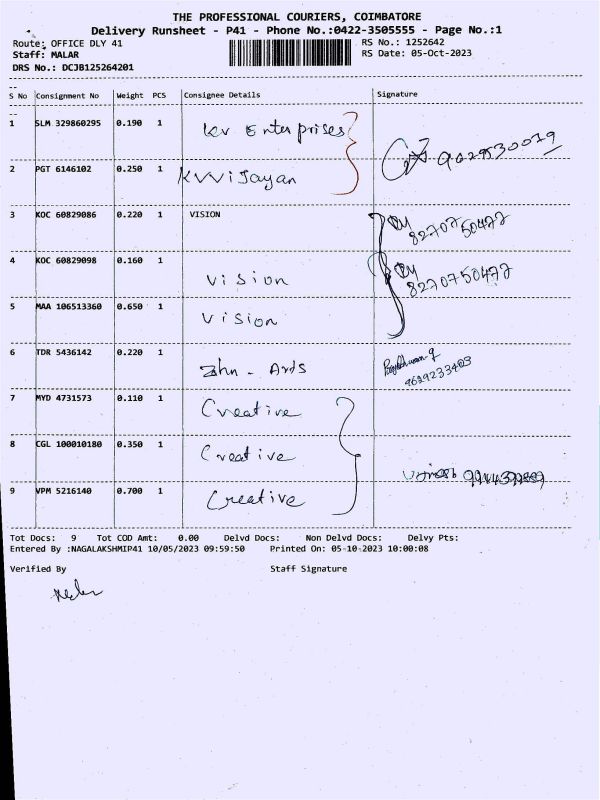 THE PROFESSIONAL COURIERS, COIMBATORE
Delivery Runsheet - P41 - Phone No.:0422-3505555 - Page No.:1
Route: OFFICE DLY 41 RS No.: 1252642
Staff: MALAR RS Date: 05-Oct-2023
DRS No.: DCJB125264201
S No Consignment No Weight PCS Consignee Details Signature
1 SLM 329860295 0.190 1 KV Enterprises
2 PGT 6146102 0.250 1 KVVijayan
3 KOC 60829086 0.220 1 VISION 8270750477
4 KOC 60829098 0.160 1 Vision 8270750477
5 MAA 106513360 0.650 1 Vision
6 TDR 5436142 0.220 1 - Arts 9629233403
7 MYD 4731573 0.110 1 Creative
8 CGL 100010180 0.350 1 Creative
9 VPM 5216140 0.700 1 Creative
Tot Docs: 9 Tot COD Amt: 0.00 Delvd Docs: Non Delvd Docs: Delvy Pts:
Entered By :NAGALAKSHMIP41 10/05/2023 09:59:50 Printed On: 05-10-2023 10:00:08
Verified By Staff Signature